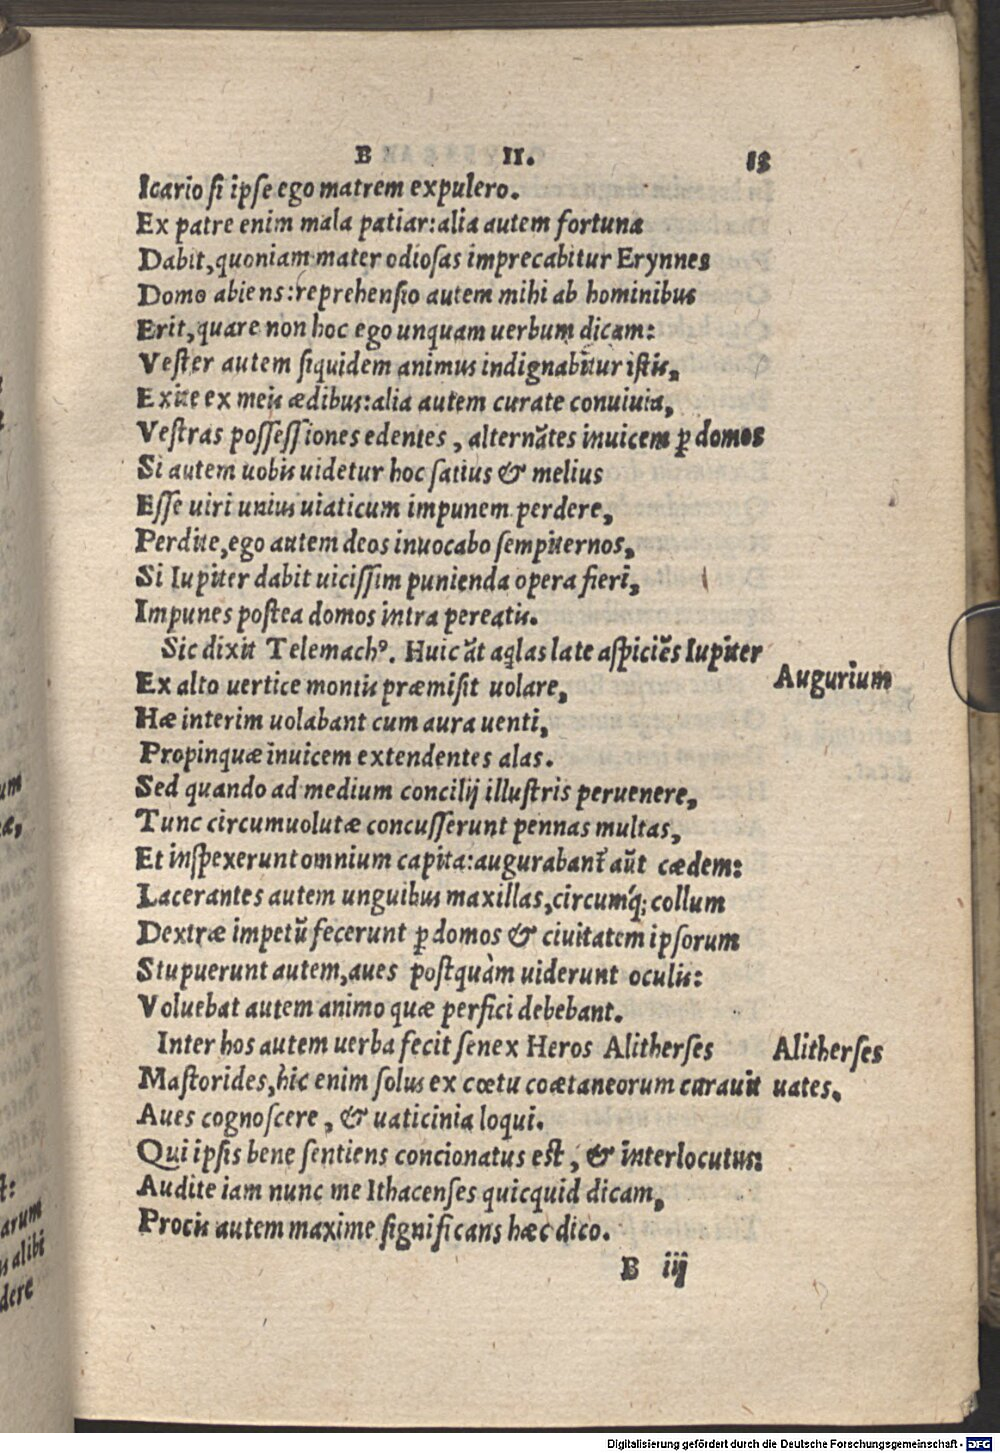 B II. 13
Icario si ipse ego matrem expulero.
Ex patre enim mala patiar:alia autem fortuna
Dabit,quoniam mater odiosas imprecabitur Erynnes
Domo abiens:reprehensio autem mihi ab hominibus
Erit,quare non hoc ego unquam uerbum dicam:
Vester autem siquidem animus indignabitur istis,
Exite ex meis ædibus:alia autem curate conuiuia,
Vestras possessiones edentes, alternãtes inuicem ꝑ domos
Si autem uobis uidetur hoc satius & melius
Esse uiri unius uiaticum impunem perdere,
Perdite,ego autem deos inuocabo sempiternos,
Si Iupiter dabit uicissim punienda opera fieri,
Impunes postea domos intra pereatis.
Sic dixit Telemachꝰ. Huic ãt aq̃las late aspiciẽs Iupiter
Augurium
Ex alto uertice montis præmisit uolare,
Hæ interim uolabant cum aura uenti,
Propinquæ inuicem extendentes alas.
Sed quando ad medium concilij illustris peruenere,
Tunc circumuolutæ concusserunt pennas multas,
Et inspexerunt omnium capita:augurabant᷑ aũt cædem:
Lacerantes autem unguibus maxillas,circumq́; collum
Dextræ impetũ fecerunt ꝑ domos & ciuitatem ipsorum
Stupuerunt autem,aues postquàm uiderunt oculis:
Voluebat autem animo quæ perfici debebant.
Inter hos autem uerba fecit senex Heros Alitherses
Alitherses
Mastorides,hic enim solus ex cœtu coætaneorum curauit
uates.
Aues cognoscere, & uaticinia loqui.
Qui ipsis bene sentiens concionatus est, & interlocutus:
Audite iam nunc me Ithacenses quicquid dicam,
Procis autem maxime significans hæc dico.
B iij
um
æ,
t:
arum
s alibi
dere
Digitalisierung gefördert durch die Deutsche Forschungsgemeinschaft - DFG